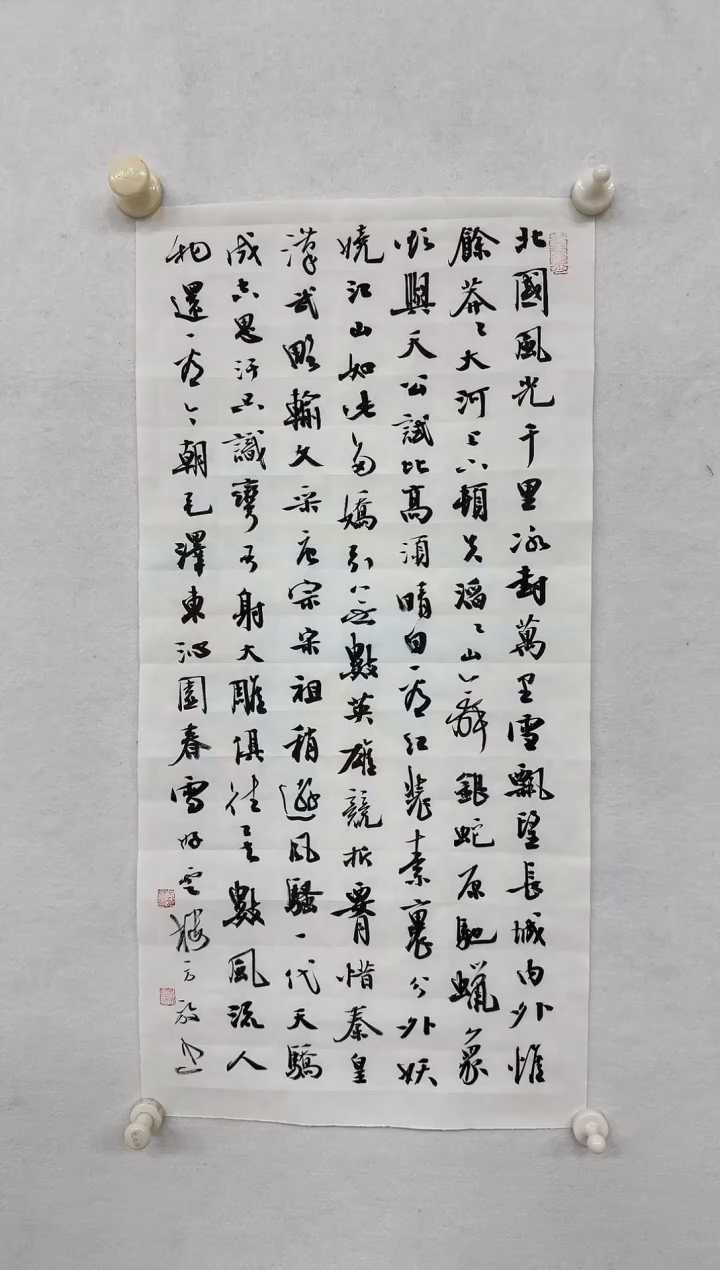 北國風光千里冰封萬里雪飄望長城内外惟
餘莽〻大河上下頓失滔〻山舞銀蛇原馳蠟象
欲與天公試比高須晴日看紅裝素裹分外妖
嬈江山如此多嬌引無數英雄競折腰惜秦皇
漢武略輸文采唐宗宋祖稍遜風騷一代天驕
成吉思汗只識彎弓射大雕俱往矣數風流人
物還看今朝毛澤東沁園春雪